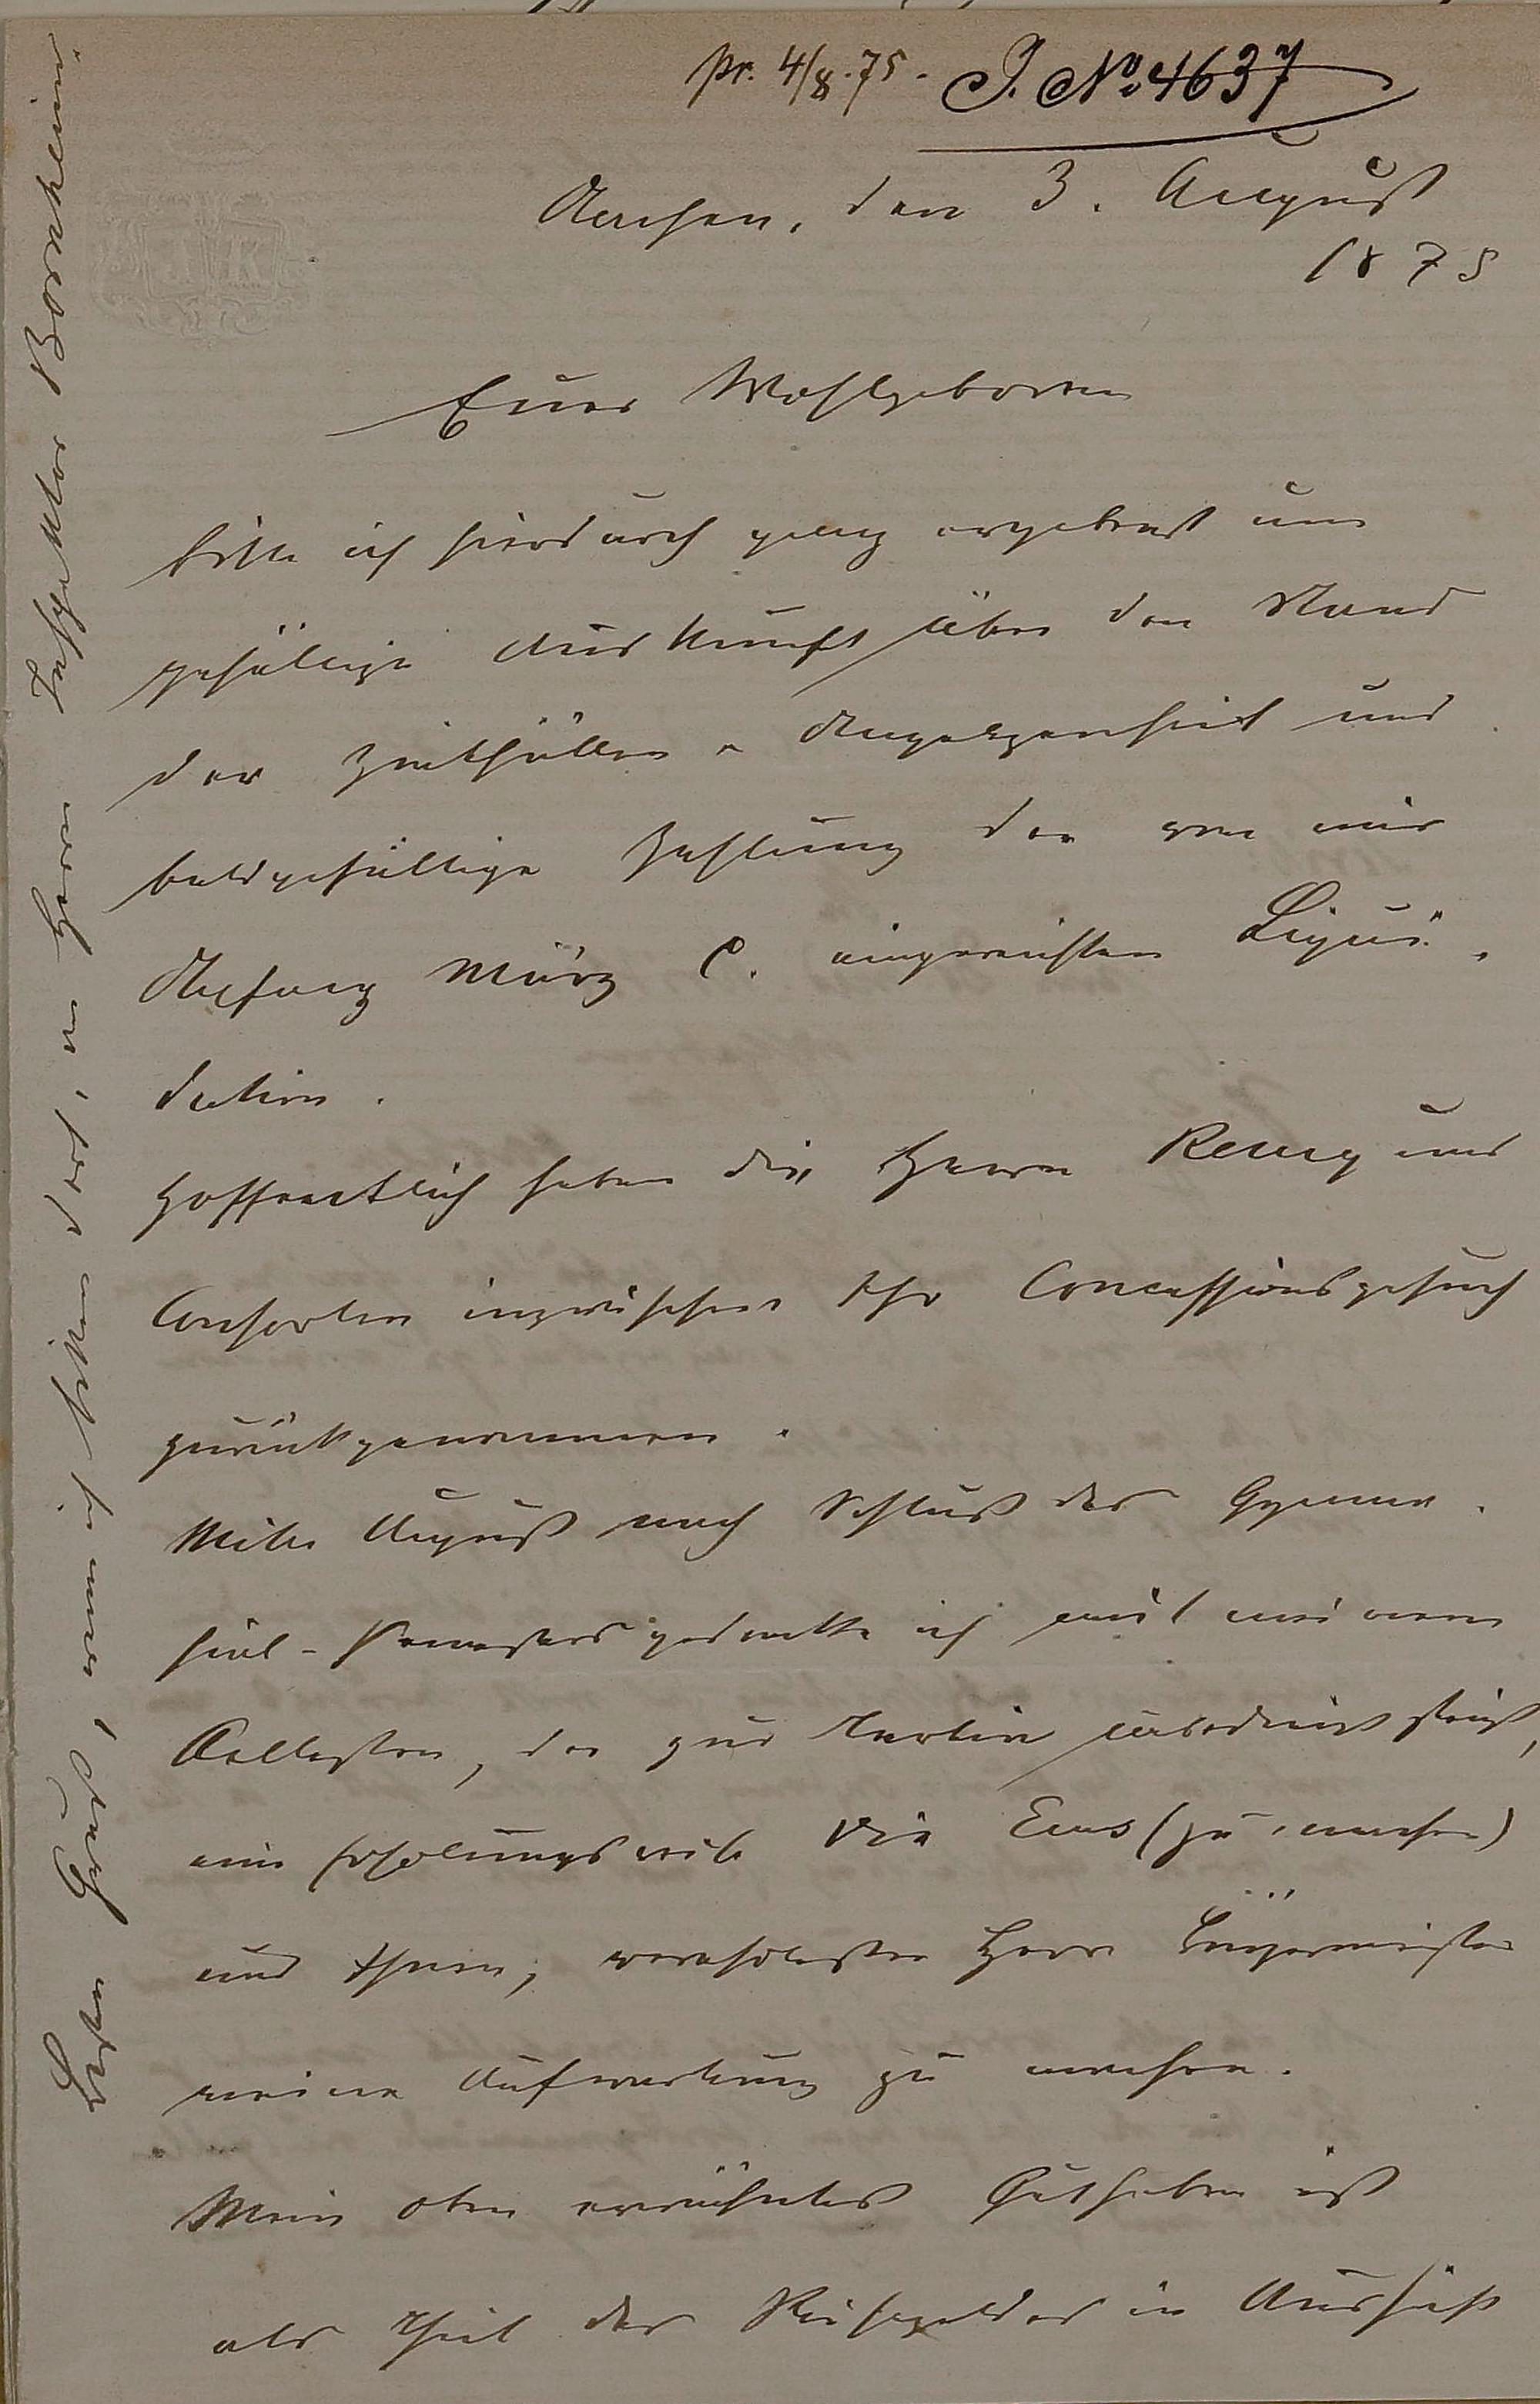 pr. 4/8.75. J. No. 4637
Aachen, den 3. August
1875
Euer Wohlgeboren
bitte ich hierdurch ganz ergebenst um
gefällige Auskunft über den Stand
der Angelegenheit und
baldgefällige Zahlung der von mir
Anfang März c. eingereichten Liqui-
dation.
Hoffentlich haben die Herren Remy und
Consorten inzwischen Ihr Concessionsgesuch
zurückgenommen.
Mitte August nach Schluß des Gymna-
sial-Semesters gedenke ich mit meinem
Aeltesten, der zur steht,
eine Erholungsreise via Ems (zu machen)
und Ihnen, verehrtester Herr Bürgermeister
meine Aufwartung zu machen.
Mein oben erwähntes Guthaben ist
als Theil des Reisegeldes in Aussicht
Besten Gruß, wenn ich bitten darf, an Herrn Inspektor Bornheim